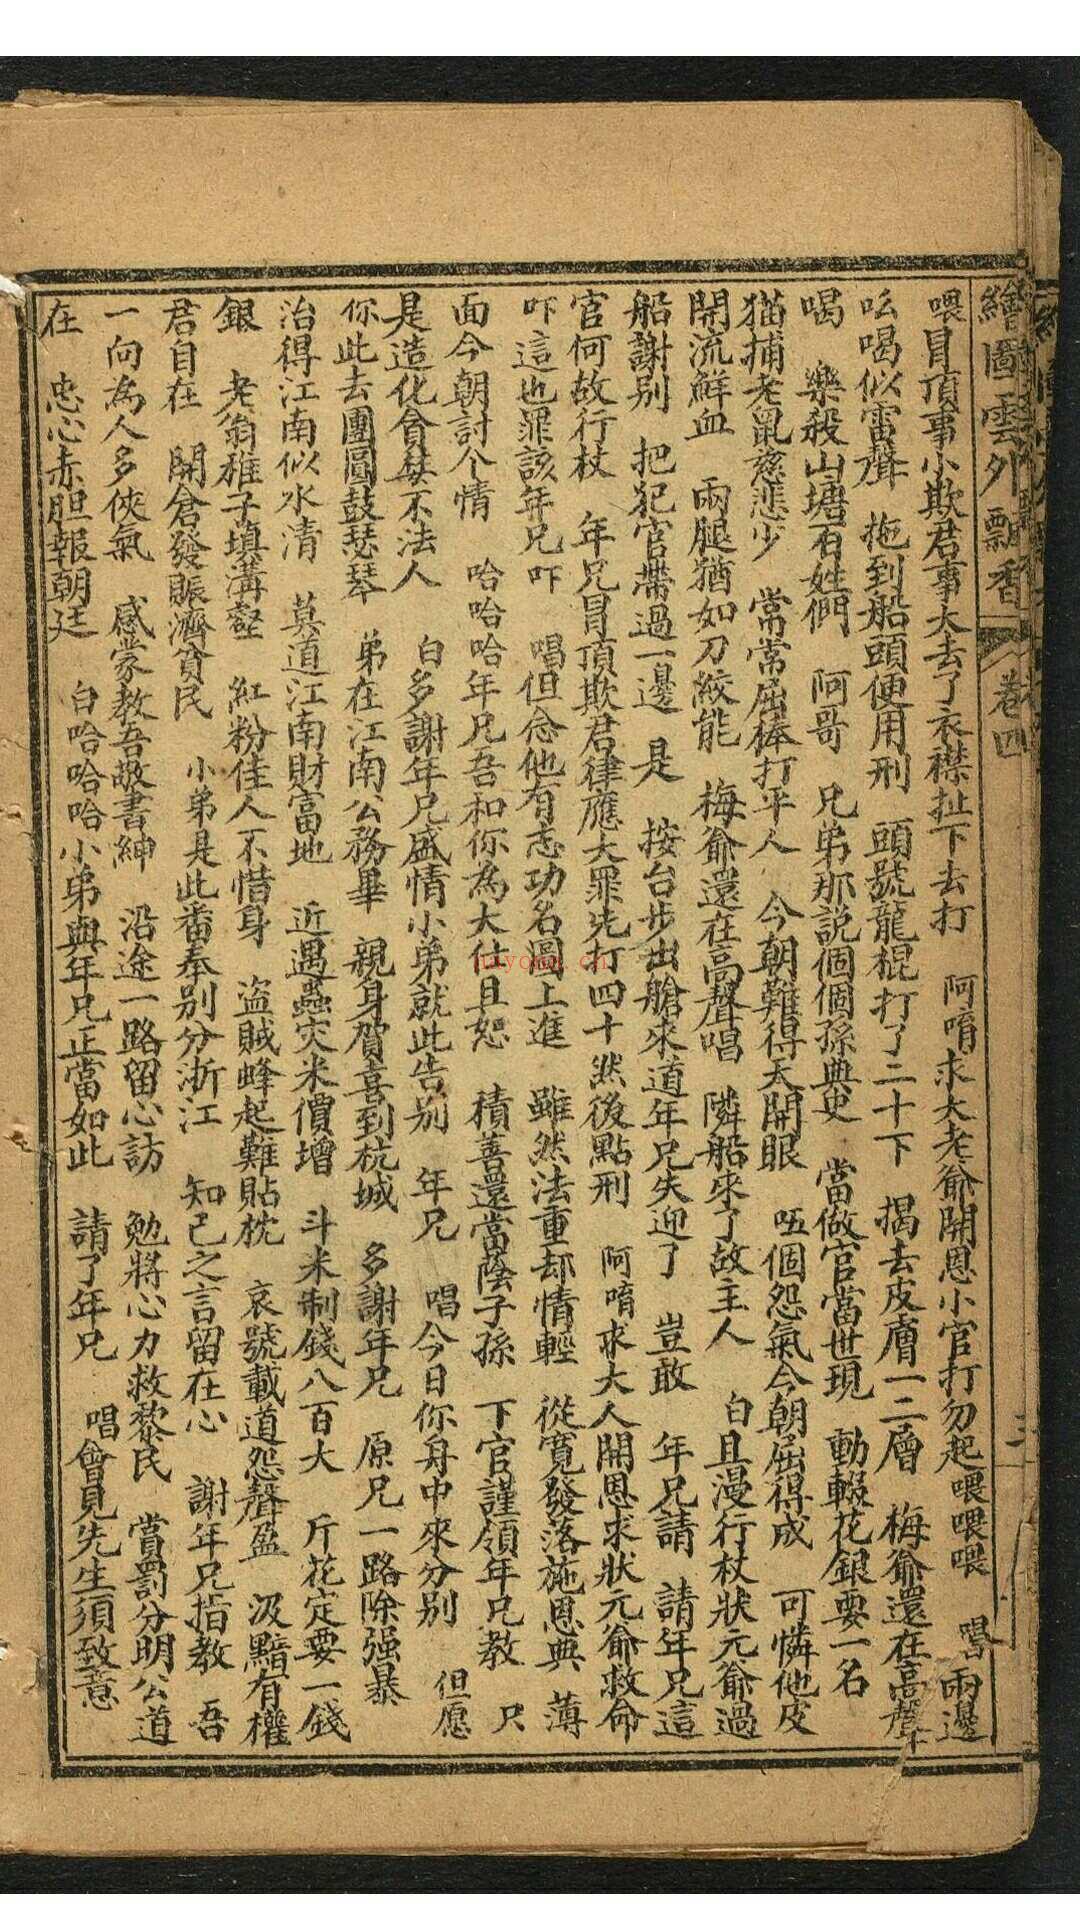 繪圖雲外飄香 卷四 三
喂冒頂事小欺君事大去了衣襟扯下去打 阿唷求大老爺開恩小官打勿起喂喂喂 唱兩邊
吆喝似雷聲 拖到船頭便用刑 頭號龍棍打了二十下 揭去皮膚一二層 梅爺還在高聲
喝 樂殺山塘百姓們 阿哥 兄弟那說個個孫典史 當做官當世現 動輟花銀要一名
猫捕老鼠慈悲少 常常屈棒打平人 今朝難得天開眼 呸個怨氣今朝屈得成 可憐他皮
開流鮮血 兩腿猶如刀絞能 梅爺還在高聲唱 隣船來了故主人 白且漫行杖狀元爺過
船謝别 把犯官帶過一邊 是 按台步出艙來道年兄失迎了 豈敢 年兄請 請年兄這
官何故行杖 年兄冒頂欺君律應大罪先打四十然後點刑 阿唷求大人開恩求狀元爺救命
吓這也罪該年兄吓 唱但念他有志功名圖上進 雖然法重却情輕 從寬發落施恩典 薄
面今朝討个情 哈哈哈年兄吾和你為大仕且恕 積善還當蔭子孫 下官謹領年兄教 只
是造化貪婪不法人 白多謝年兄盛情小弟就此告别 年兄 唱今日你舟中來分别 但愿
你此去團圓鼓瑟琴 弟在江南公務畢 親身賀喜到杭城 多謝年兄 原兄一路除强暴
治得江南似水清 莫道江南財富地 近遇蟲灾米價增 斗米制錢八百大 斤花定要一錢
銀 老翁稚子填溝壑 紅粉佳人不惜身 盗賊蜂起難貼枕 哀號載道怨聲盈 汲黯有權
君自在 開倉發賑濟貧民 小弟是此番奉别分浙江 知己之言留在心 謝年兄指教 吾
一向為人多俠氣 感蒙教吾敢書紳 沿途一路留心訪 勉將心力救黎民 賞罰分明公道
在 忠心赤胆報朝廷 白哈哈哈小弟與年兄正當如此 請了年兄 唱會見先生須致意
nayona.cn